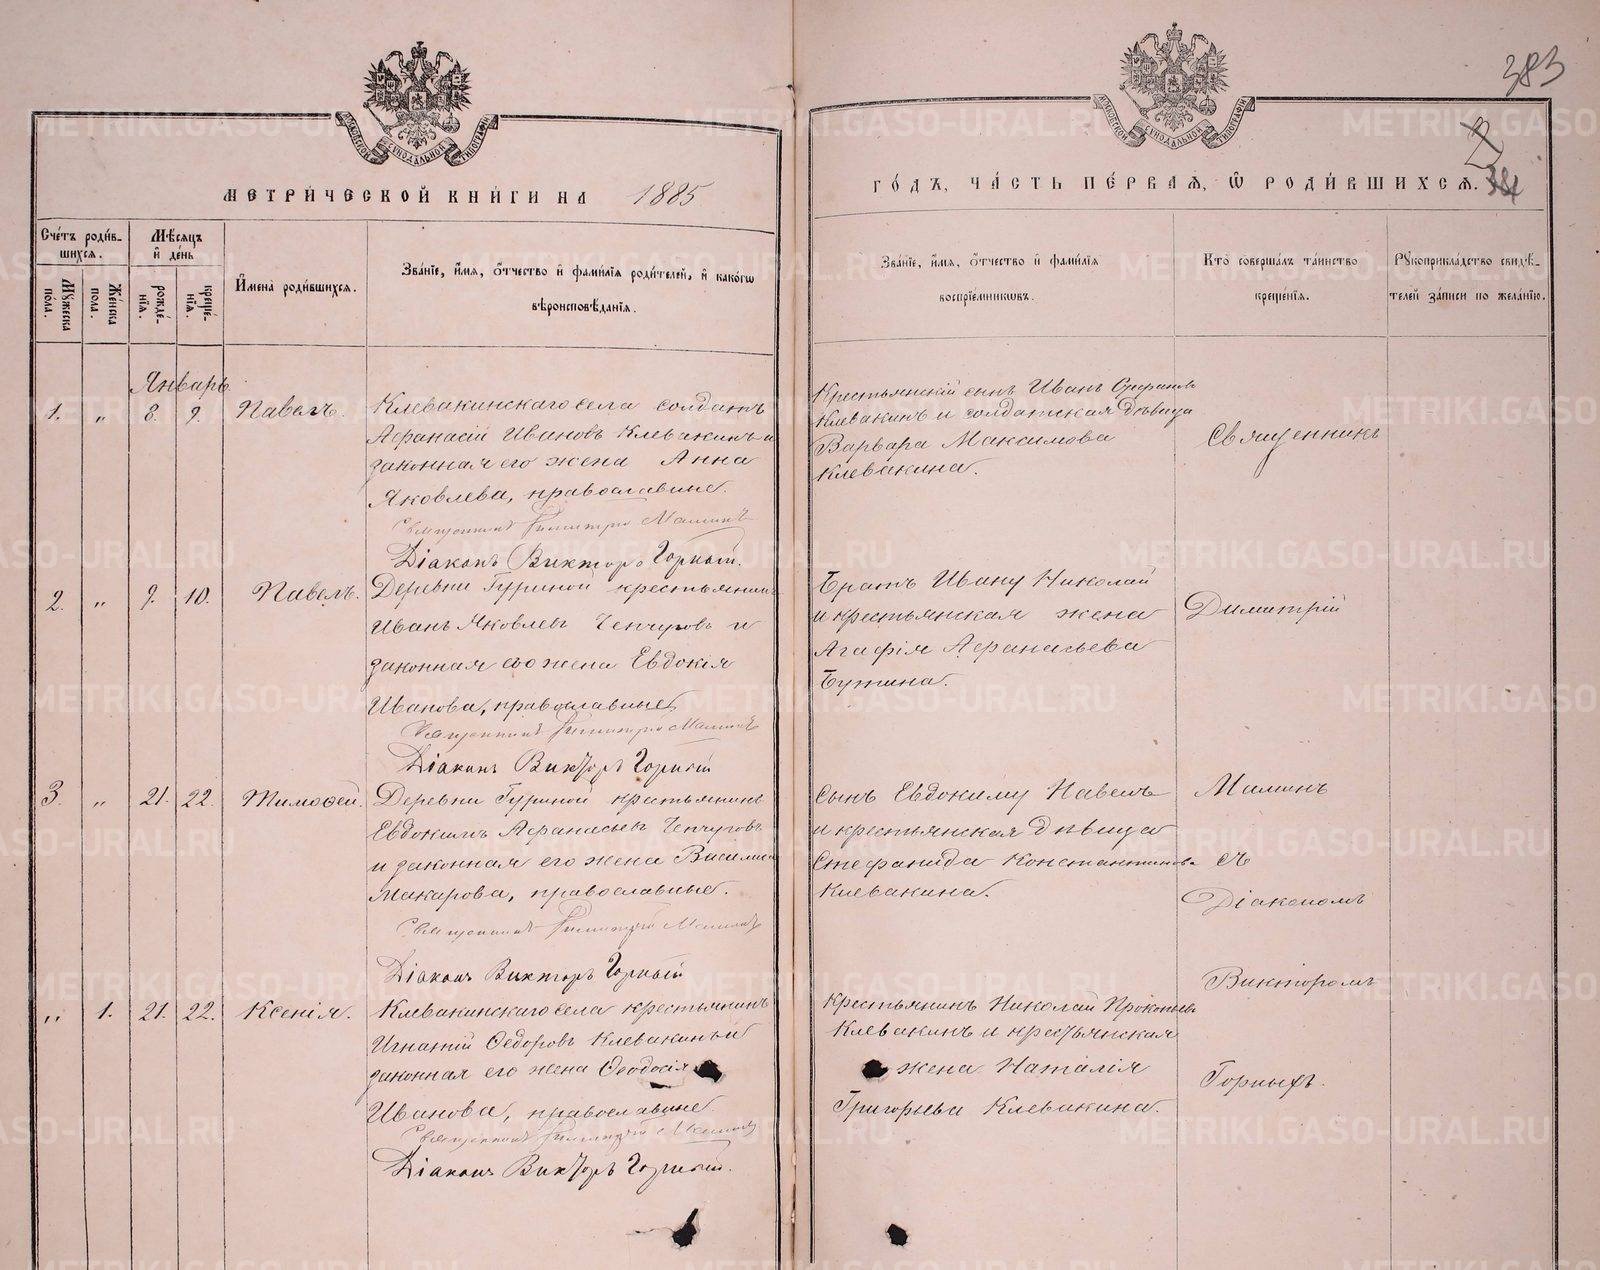 383
МОСКОВСКОЙ СѴНОДАЛЬНОЙ ТИПОГРАФІИ
МОСКОВСКОЙ СѴНОДАЛЬНОЙ ТИПОГРАФІИ
МЕТРИ́ЧЕСКОЙ КНИ́ГИ НА 1885
ГО́ДЪ, ЧА́СТЬ ПЕ́РВАЯ, Ѽ РОДИ́ВШИХСЯ.
Сче́тъ роди́в-
шихся.
Мꙋ́жеска
по́ла.
Же́нска
по́ла.
Мѣ́сяцъ
и҆ де́нь
рожде́-
нїѧ.
креще́-
нїѧ.
И҆мена̀ роди́вшихся.
Зва́нїе, и҆́мя, ѻ҆́тчество и҆ фами́лїя роди́телей, и҆ како́гѡ
вѣроисповѣ́данїя.
Зва́нїе, и҆́мя, ѻ҆́тчество и҆ фами́лїя
воспрїе́мникѡвъ.
Кто̀ соверша́лъ та́инство
креще́нїя.
Рꙋкоприкла́дство свидѣ́-
телей за́писи по жела́нїю.
Январь
1. „ 8. 9. Павелъ.
Клевакинскаго села солдатъ
Афанасій Ивановъ Клевакинъ и
законная его жена Анна
Яковлева, православные.
Священникъ Димитрій Маминъ
Діаконъ Викторъ Горный.
Крестьянскій сынъ Иванъ Стефановъ
Клевакинъ и солдатская дѣвица
Варвара Максимова
Клевакина.
Священникъ
2. „ 9. 10. Павелъ.
Деревни Гуриной крестьянинъ
Иванъ Яковлевъ Чепчуговъ и
законная его жена Евдокія
Иванова, православные
Священникъ Димитрій Маминъ
Діаконъ Викторъ Горный
Братъ Ивану Николай
и крестьянская жена
Агафія Афанасьева
Бужина.
Димитрій
3. „ 21. 22. Тимофей.
Деревни Гуриной крестьянинъ
Евдокимъ Афанасьевъ Чепчуговъ
и законная его жена Василиса
Макарова, православные.
Священникъ Димитрій Маминъ
Діаконъ Викторъ Горный
Сынъ Евдокиму Павелъ
и крестьянская дѣвица
Стефанида Константинова
Клевакина.
Маминъ
съ
Діакономъ
„ 1. 21. 22. Ксенія.
Клевакинскаго села крестьянинъ
Игнатій Ѳедоровъ Клевакинъ и
законная его жена Ѳеодосія
Иванова, православные
Священникъ Димитрій Маминъ
Діаконъ Викторъ Горный.
Крестьянинъ Николай Прокопьевъ
Клевакинъ и крестьянская
жена Наталія
Григорьева Клевакина.
Викторомъ
Горныхъ.
METRIKI.GASO-URAL.RU